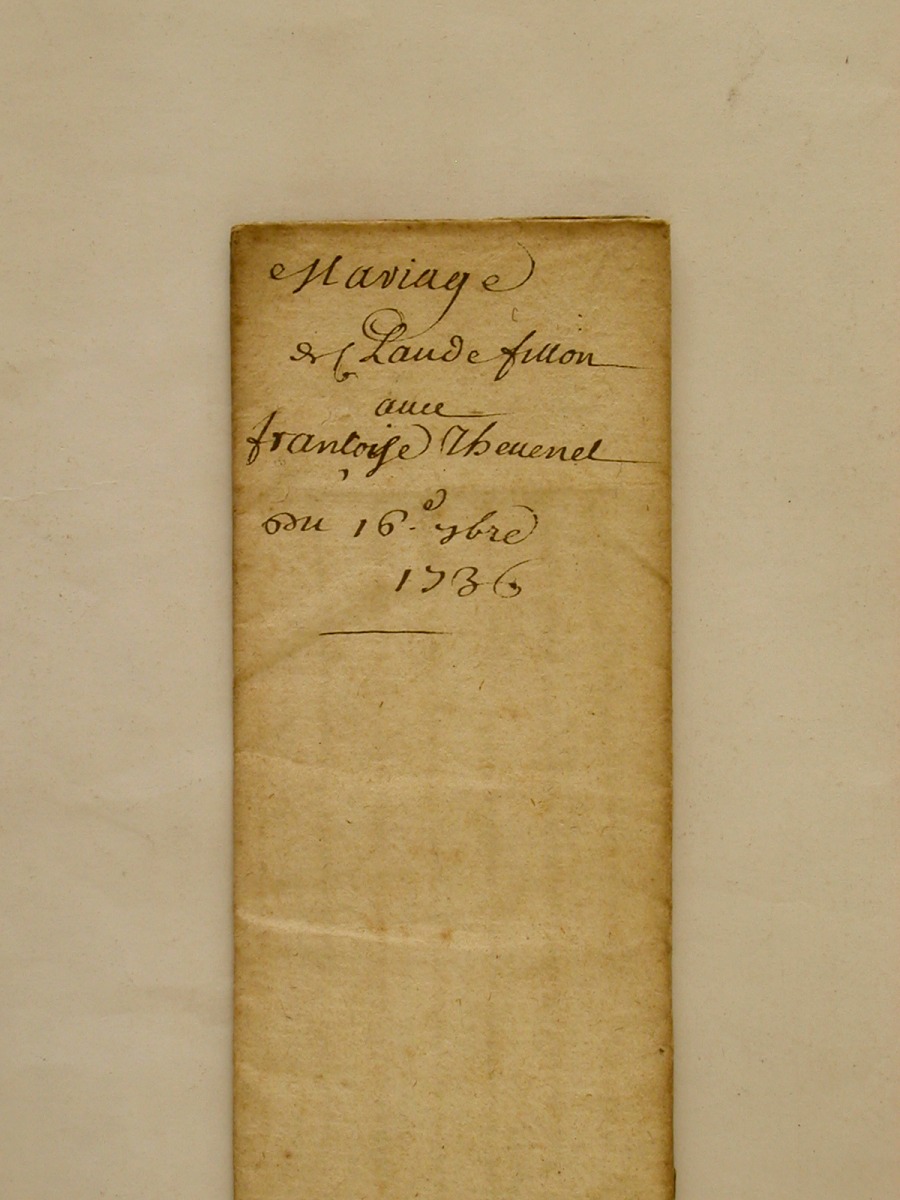 Mariage
de Claude fillon
auec
françoise Theuenet
Du 16.e 9bre
1736